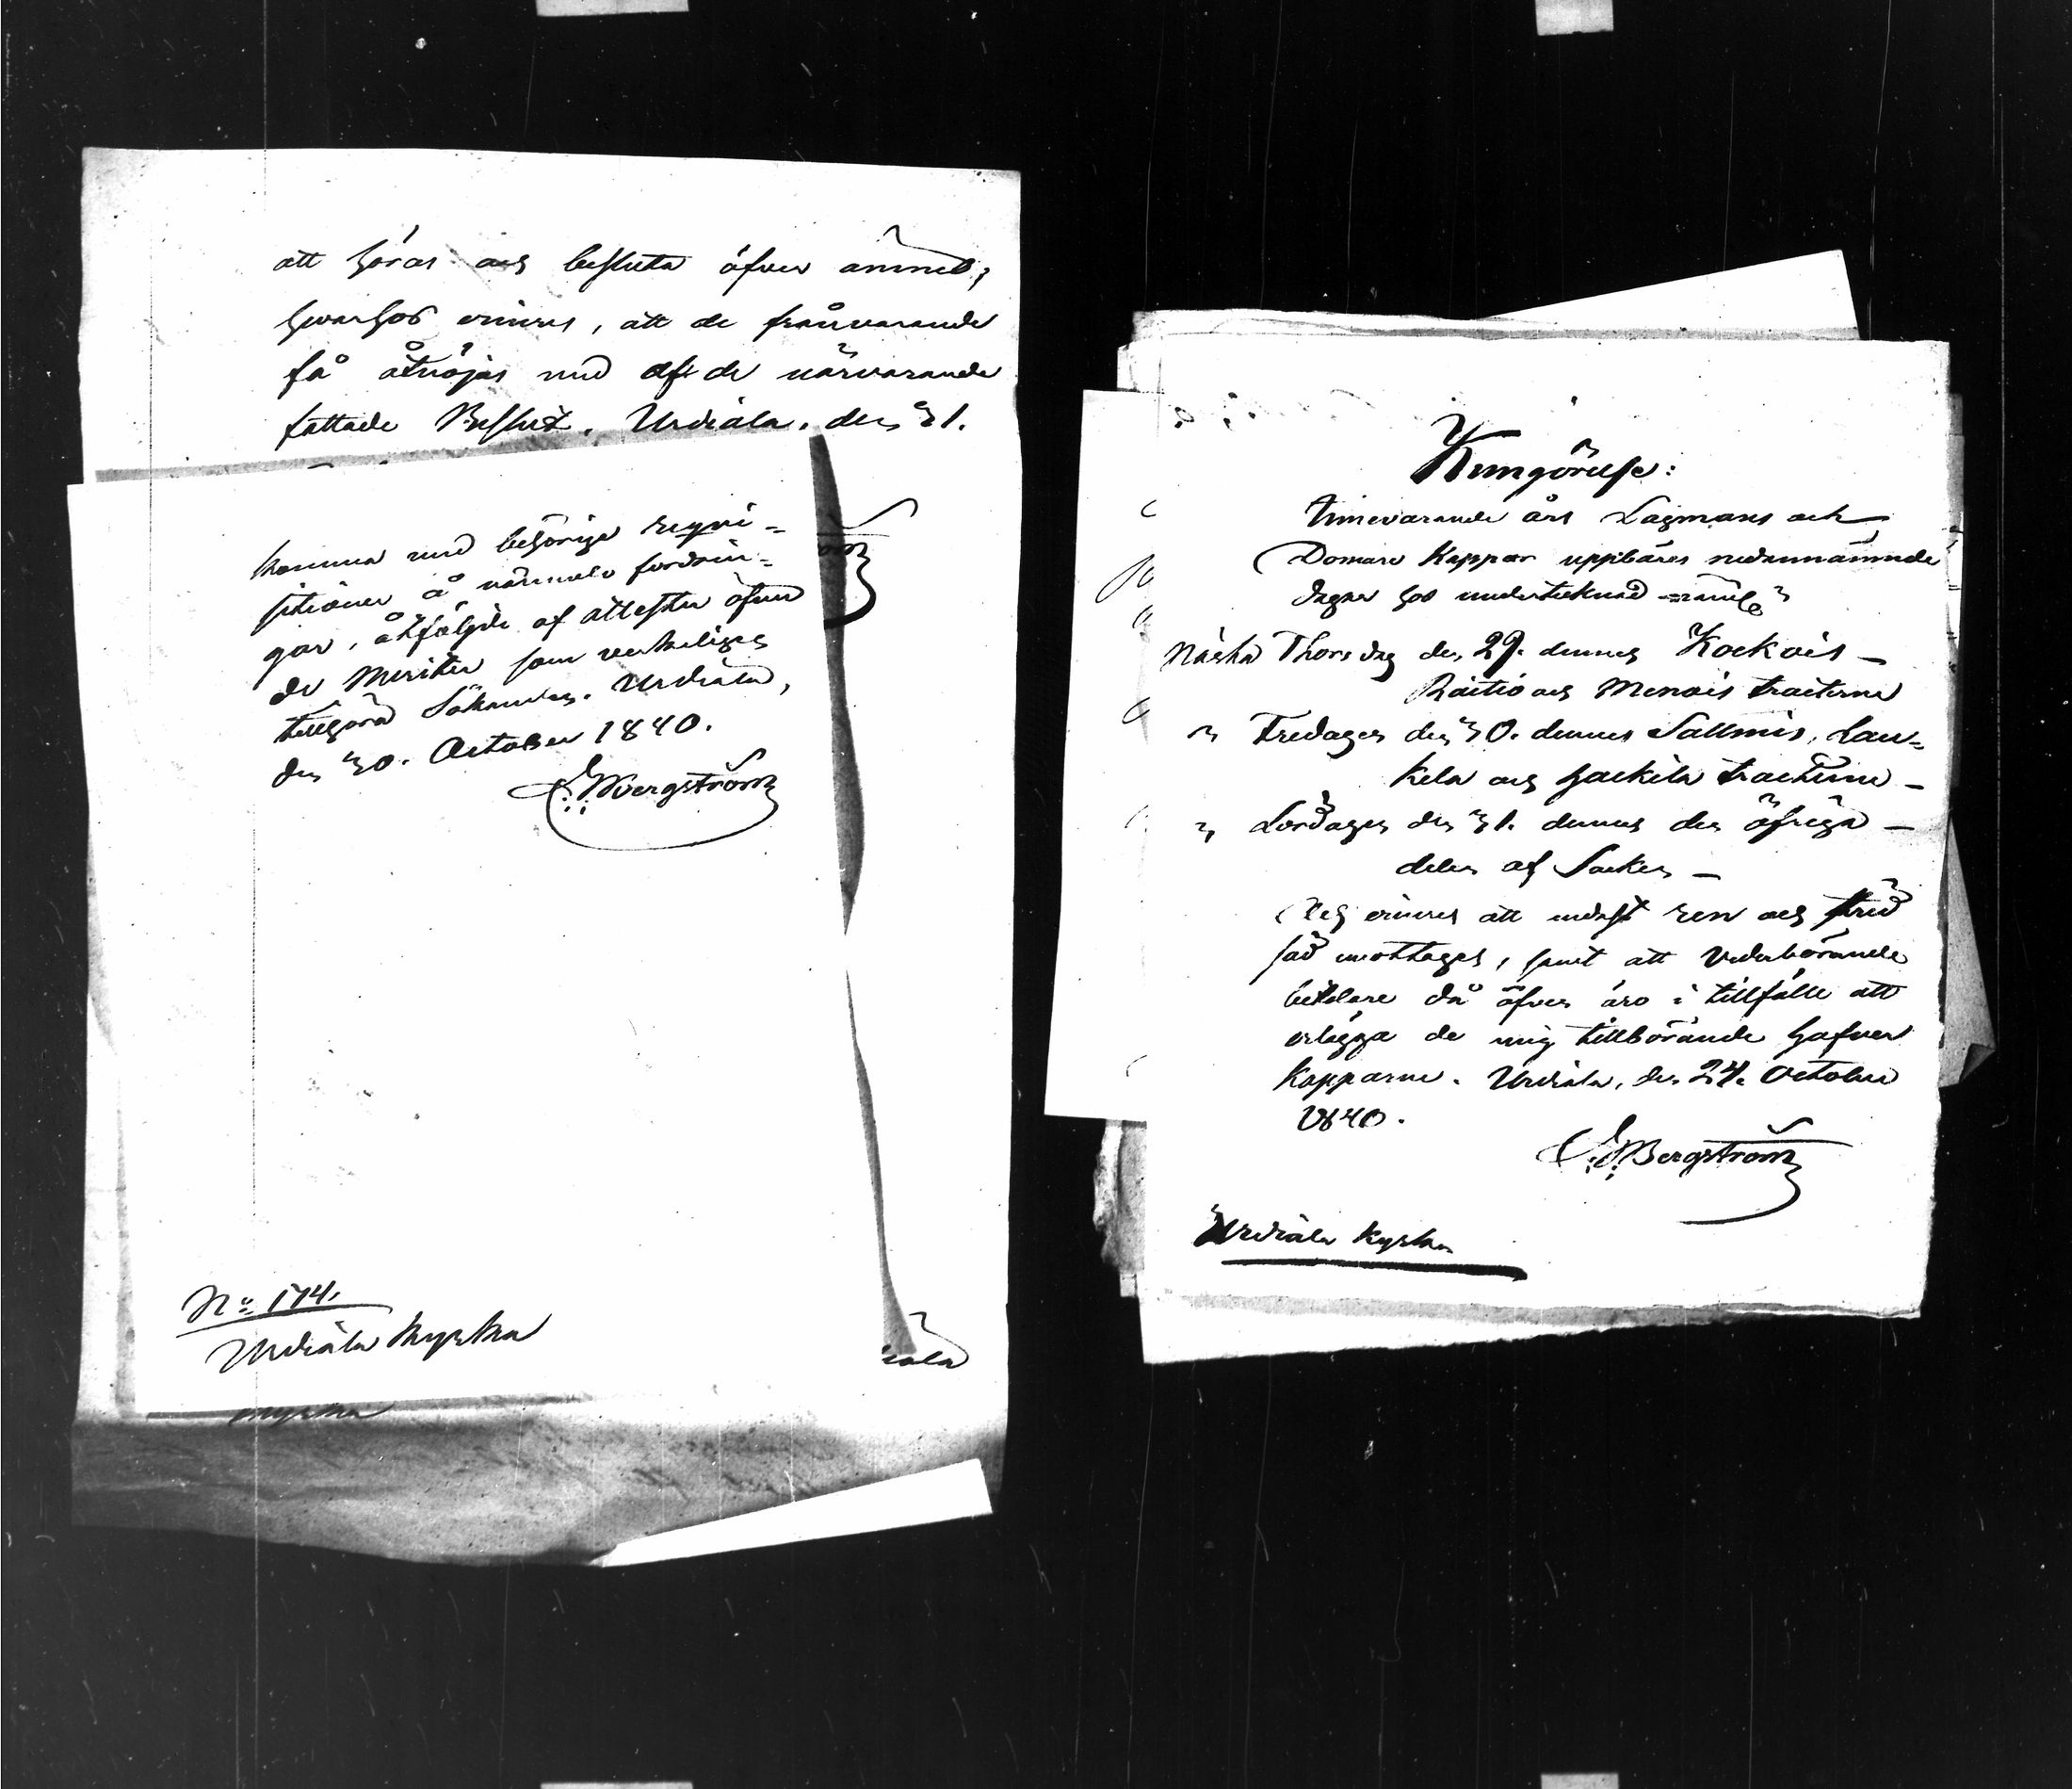 att höras och besluta öfver ämnet,
hvarhos erinras, att de frånvarande
få åtnöjas med af de närvarande
fattade Beslut. Urdiala, den 31.
komma med behöriga requi-
sitioner å nämnde fordrin-
gar, åtföljde af attester öfver
de Meriter som verkeligen
tillhöra Sökanden. Urdiala,
den 30. October 1840.
Bergström
No 174.
Urdiala Kyrka
iala
Kyrka
Kungörelse:
Innevarande års Lagmans och
Domare Kappar uppbäres nedannämnde
dagar hos undertecknad näml:
Nästa Thorsdag den 29. dennes Kockois –
Raitio och Menois tracterne
" Fredagen den 30. dennes Sallmis, Lau-
kela och Hackila tracterne –
" Lördagen den 31. dennes den öfriga –
delen af Socken –
Och erinras att endast ren och torr
säd mottages, samt att Vederbörande
betalare då äfven äro i tillfälle att
erlägga de mig tillhörande hafver
Kapparne. Urdiala, den 24. October
1840.
Bergström
Urdiala Kyrka